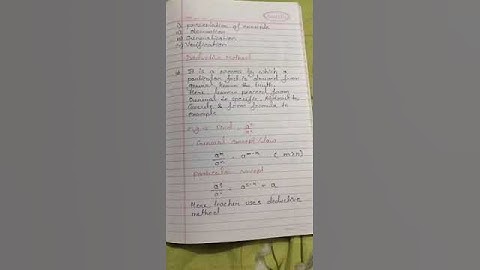 i) presentation of example
ii) observation
iii) Generalization
iv) Verification
Deductive method
It is a process by which a
particular fact is derived from
general known the truth.
Here learner proceed from
General to specific, Abstract to
concrete & from formula to
example
e.g → Find
General concept/law
a^m/a^n = a^m-n (m>n)
Particular concept
= a
Here teacher uses deductive
method